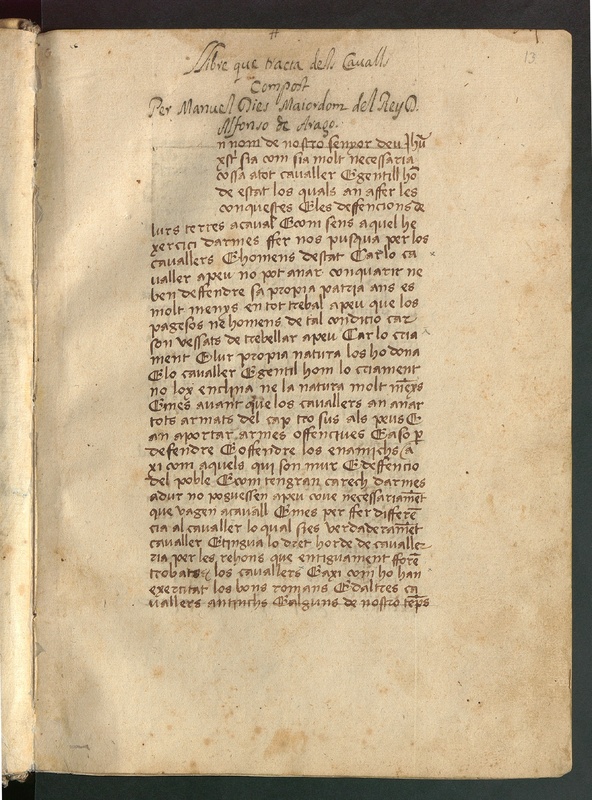 13
Llibre que tracta dels Cavalls
Compost
Per Manuel Dies Maiordom del Rey D.
Alfonso de Arago.
n nom de nostro senyor deu Jhũ
xp̃t sia com sia molt necessaria
cossa atot cavaller E gentill hõ
de estat los quals an affer les
conquestes E les deffencions de
lurs terres a caval E com sens aquel he
xercici darmes ffer nos pusqua per los
cavallers E homens destat Car lo ca
valler apeu no pot anar conquarir ne
ben deffendre sa propia patria ans es
molt menys en tot trebal apeu que los
pagesos ne homens de tal condicio car
son vessats de trebellar apeu Car lo cria
ment E lur propia natura los ho dona
E lo cavaller E gentil hom lo criament
no lox enclina ne la natura molt mẽys
E mes avant que los cavallers an anar
tots armats del cap tro sus als peus E
an aportar armes offencives E aso p̱
defendre E offendre los enamichs (a
xi com aquels qui son mur E deffencio
del poble E com tengran carech darmes
adur no poguessen apeu cove necessariamẽt
que vagen acavall E mes per ffer differẽ
cia al cavaller lo qual sies verdaderamẽt
cavaller E tingua lo dret horde de cavalle
ria per les rehons que entiguament fforẽ
trobats los cavallers E axi com ho han
exercitat los bons romans E daltres ca
vallers antichs E alguns de nostro tẽps